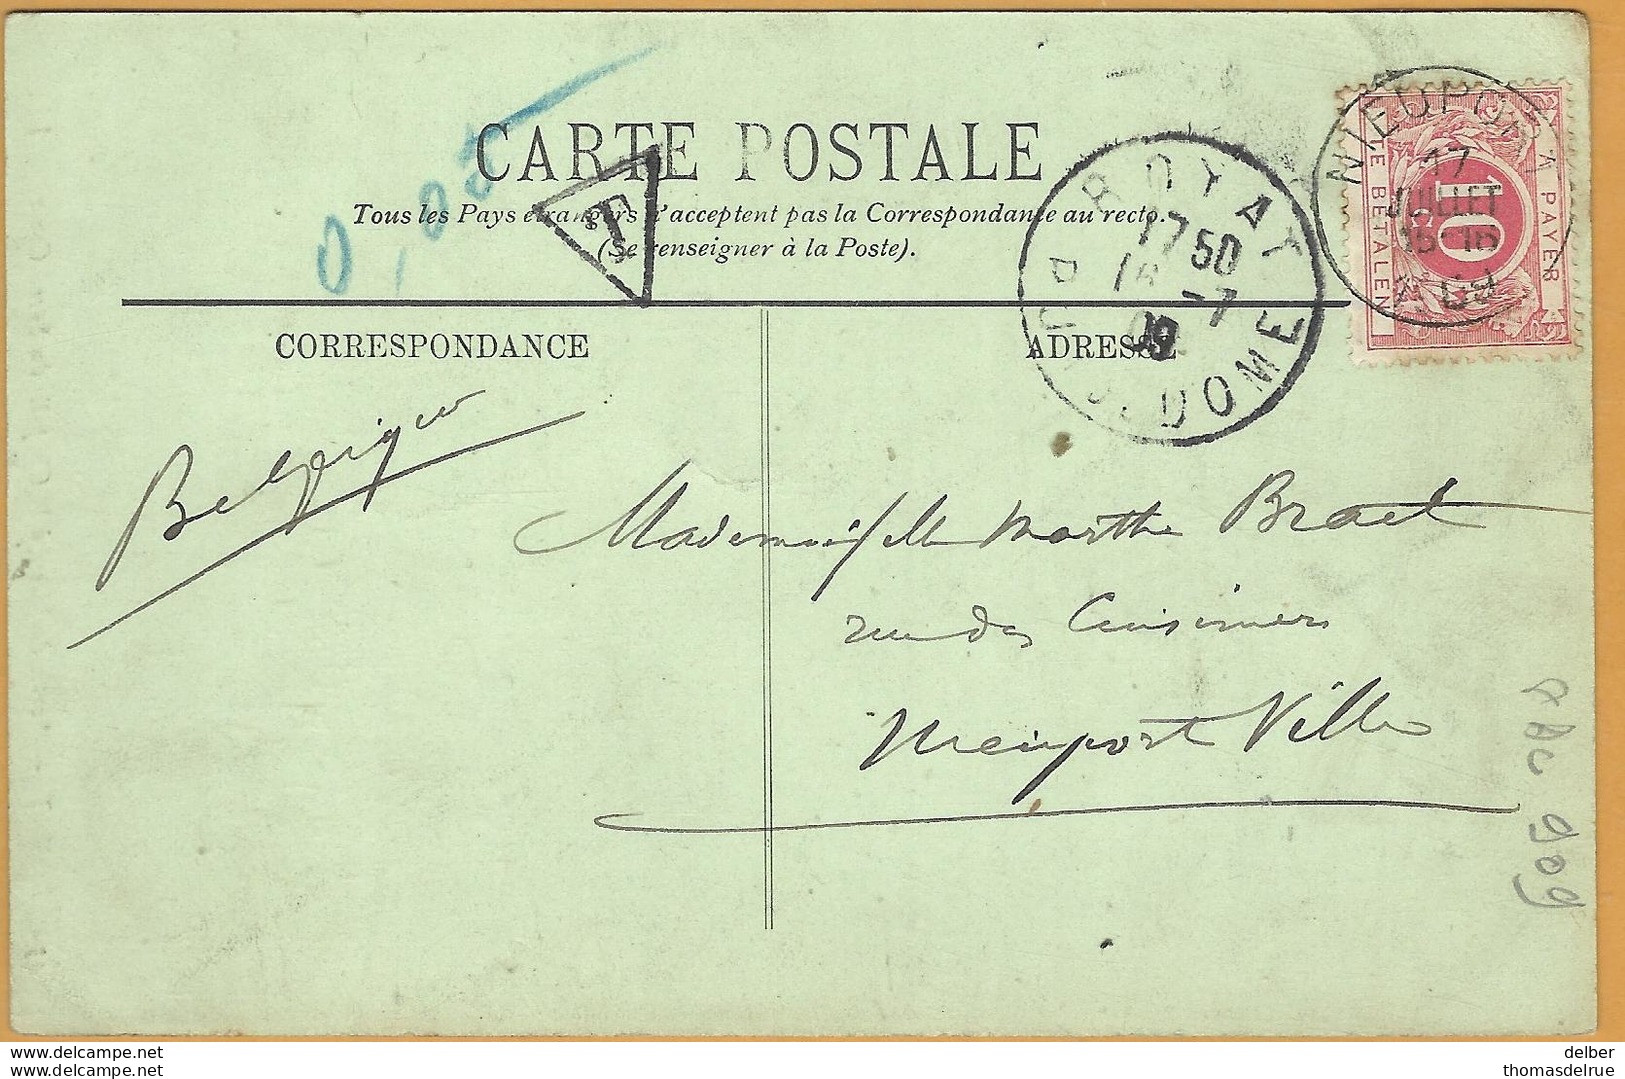 0,05
CARTE POSTALE
T
Tous les Pays étrangers n'acceptent pas la Correspondance au recto.
(Se renseigner à la Poste).
ROYAT
17 50
-7
09
PUY-DE-DOME
NIEUPORT
17
JUILLET
15-16
1909
A PAYER
10
TE BETALEN
CORRESPONDANCE
ADRESSE
Belgique
Mademoiselle Marthe Braet
rue des Cuisiniers
Nieuport Ville
909
delber
www.delcampe.net
thomasdelrue
www.delcampe.net